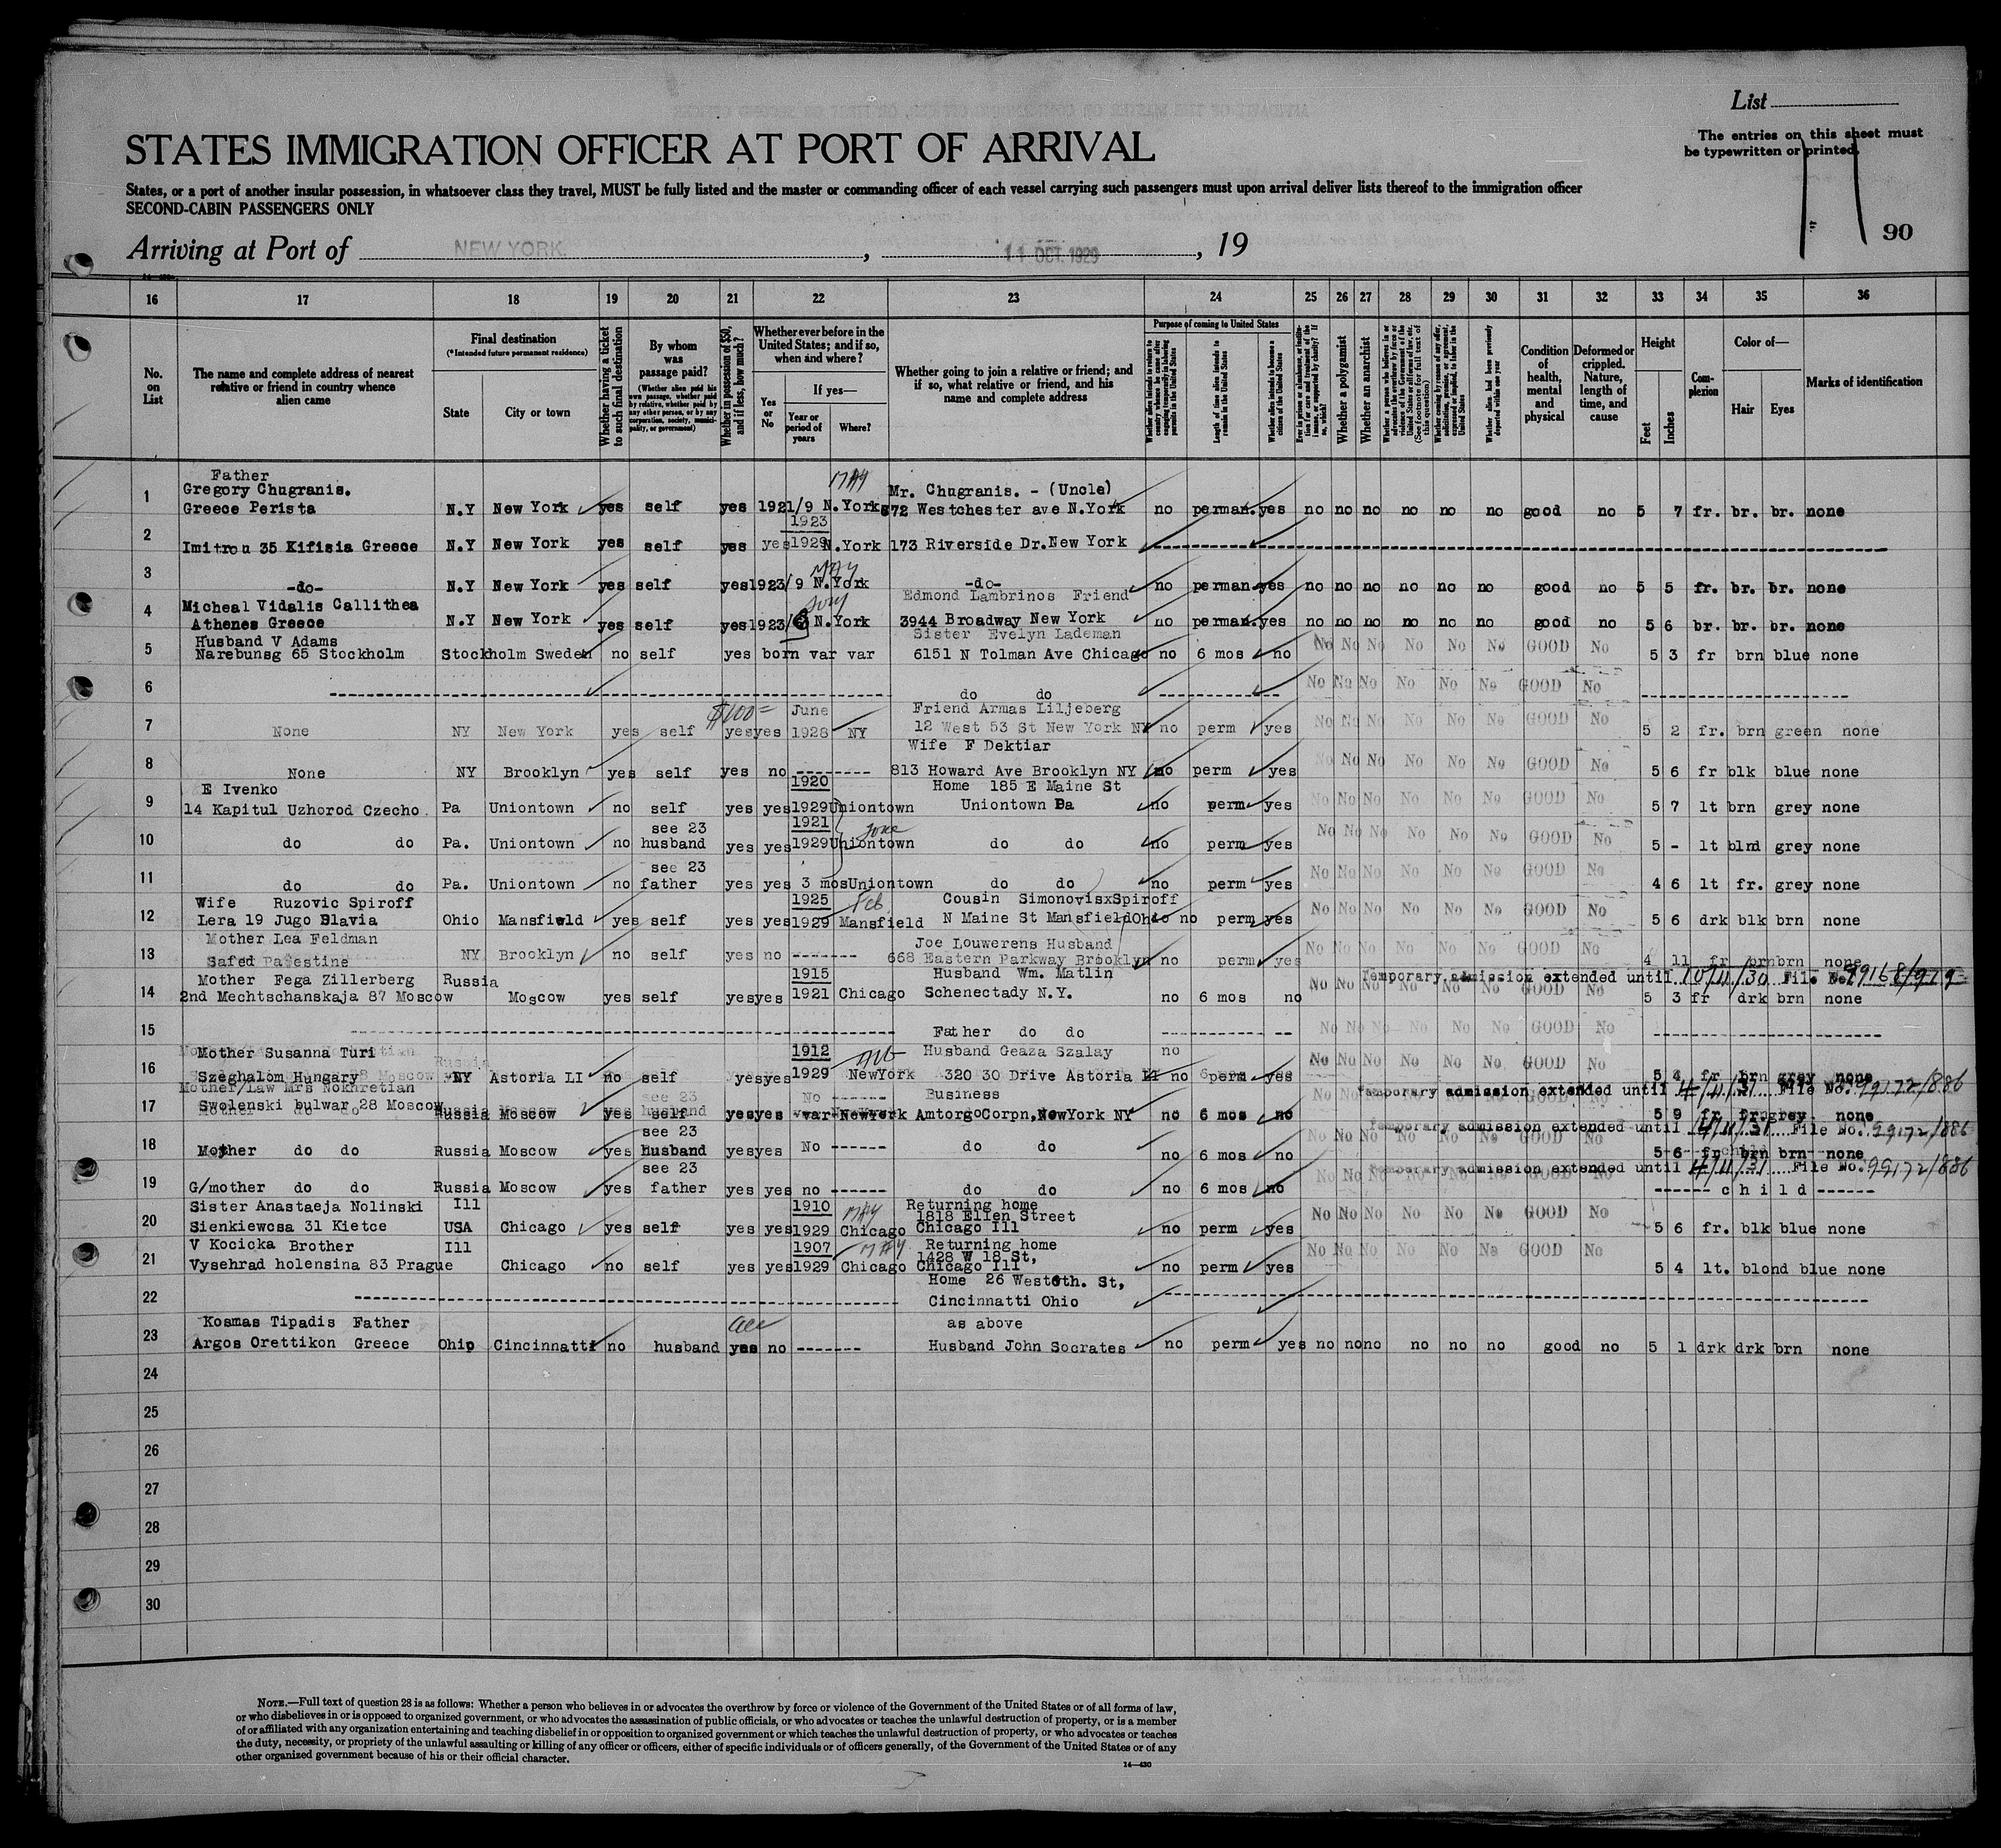 List
The entries on this sheet must
be typewritten or printed.
STATES IMMIGRATION OFFICER AT PORT OF ARRIVAL
States, or a port of another insular possession, in whatsoever class they travel, MUST be fully listed and the master or commanding officer of each vessel carrying such passengers must upon arrival deliver lists thereof to the immigration officer
SECOND-CABIN PASSENGERS ONLY
Arriving at Port of NEW YORK. , 11 OCT. 1929 , 19
90
16 17 18 19 20 21 22 23 24 25 26 27 28 29 30 31 32 33 34 35 36
No. on List
The name and complete address of nearest relative or friend in country whence alien came
Final destination (*Intended future permanent residence)
State
City or town
Whether having a ticket to such final destination
By whom was passage paid?
(Whether alien paid his own passage, whether paid by relative, whether paid by any other person, or by any corporation, society, municipality, or government)
Whether in possession of $50, and if less, how much?
Whether ever before in the United States; and if so, when and where?
Yes or No
If yes—
Year or period of years
Where?
Whether going to join a relative or friend; and if so, what relative or friend, and his name and complete address
Purpose of coming to United States
Length of time alien intends to remain in the United States
Whether alien intends to become a citizen of the United States
Whether a polygamist
Whether an anarchist
Whether alien had been previously deported within one year
Condition of health, mental and physical
Deformed or crippled. Nature, length of time, and cause
Height
Feet
Inches
Complexion
Color of—
Hair
Eyes
Marks of identification
Father MAY
1 Gregory Chugranis. Mr. Chugranis. - (Uncle)
Greece Perista N.Y New York yes self yes 1921/9 N.York 872 Westchester ave N.York no perman. yes no no no no no no good no 5 7 fr. br. br. none
1923
2 Imitrou 35 Kifisia Greece N.Y New York yes self yes yes 1929 N.York 173 Riverside Dr. New York
MAY
3 -do- N.Y New York yes self yes 1923/9 N.York -do- no perman. yes no no no no no no good no 5 5 fr. br. br. none
4 Micheal Vidalis Callithea Edmond Lambrinos Friend
Athenes Greece N.Y New York yes self yes 1923/ N.York 3944 Broadway New York no perman. yes no no no no no no good no 5 6 br. br. br. none
5 Husband V Adams Sister Evelyn Lademan
Narebunsg 65 Stockholm Stockholm Sweden no self yes born var var 6151 N Tolman Ave Chicago no 6 mos no No No No No No No GOOD No 5 3 fr brn blue none
6 do do No No No No No No GOOD No
$100= June Friend Armas Liljeberg
7 None NY New York yes self yes yes 1928 NY 12 West 53 St New York NY no perm yes No No No No No No GOOD No 5 2 fr. brn green none
Wife F Dektiar
8 None NY Brooklyn yes self yes no 813 Howard Ave Brooklyn NY no perm yes No No No No No GOOD No 5 6 fr blk blue none
E Ivenko 1920 Home 185 E Maine St
9 14 Kapitul Uzhorod Czecho. Pa Uniontown no self yes yes 1929 Uniontown Uniontown Pa no perm yes No No No No No No GOOD No 5 7 lt brn grey none
see 23 1921 June
10 do do Pa. Uniontown no husband yes yes 1929 Uniontown do do no perm yes No No No No No No GOOD No 5 - lt blnd grey none
see 23
11 do do Pa. Uniontown no father yes yes 3 mos Uniontown do do no perm yes No No No No No No GOOD No 4 6 lt fr. grey none
Wife Ruzovic Spiroff 1925 Feb Cousin SimonovisxSpiroff
12 Lera 19 Jugo Slavia Ohio Mansfield yes self yes yes 1929 Mansfield N Maine St Mansfield Ohio no perm yes No No No No No No GOOD No 5 6 drk blk brn none
Mother Lea Feldman Joe Louwerens Husband
13 Safed Palestine NY Brooklyn no self yes no 668 Eastern Parkway Brooklyn no perm yes No No No No No No GOOD No 4 11 fr brn brn none
Mother Fega Zillerberg Russia 1915 Husband Wm. Matlin Temporary admission extended until 10/11/30 File No. 99168/979
14 2nd Mechtschanskaja 87 Moscow Moscow yes self yes yes 1921 Chicago Schenectady N.Y. no 6 mos no No No No No No No GOOD No 5 3 fr drk brn none
15 Father do do No No No No No No GOOD No
Mother Susanna Turi 1912 Husband Geaza Szalay no
16 Szeghalom Hungary NY Astoria LI no self yes yes 1929 NewYork 320 30 Drive Astoria LI no perm yes No No No No No No GOOD No 5 4 fr brn grey none
Mother/Law Mrs Nokhretian Business Temporary admission extended until 4/11/31 File No. 99172/886
17 Swolenski bulwar 28 Moscow Russia Moscow yes self yes yes var NewYork Amtorg Corpn, NewYork NY no 6 mos no 5 9 fr grey none
see 23 Temporary admission extended until 4/11/31 File No. 99172/886
18 Mother do do Russia Moscow yes husband yes yes No do do no 6 mos no No No No No No No GOOD No 5 6 fr brn brn none
see 23 Temporary admission extended until 4/11/31 File No. 99172/886
19 G/mother do do Russia Moscow yes father yes yes no do do no 6 mos no child
Sister Anastaeja Nolinski Ill 1910 MAY Returning home
1818 Ellen Street
20 Sienkiewcsa 31 Kietce USA Chicago yes self yes yes 1929 Chicago Chicago Ill no perm yes No No No No No No GOOD No 5 6 fr. blk blue none
V Kocicka Brother Ill 1907 MAY Returning home
1428 W 18 St,
21 Vysehrad holensina 83 Prague Chicago no self yes yes 1929 Chicago Chicago Ill no perm yes No No No No No No GOOD No 5 4 lt. blond blue none
Home 26 West 6th. St,
22 Cincinnatti Ohio
Kosmas Tipadis Father as above
23 Argos Orettikon Greece Ohio Cincinnatti no husband yes no Husband John Socrates no perm yes no no no no no no good no 5 1 drk drk brn none
24
25
26
27
28
29
30
NOTE.—Full text of question 28 is as follows: Whether a person who believes in or advocates the overthrow by force or violence of the Government of the United States or of all forms of law,
or who disbelieves in or is opposed to organized government, or who advocates the assassination of public officials, or who advocates or teaches the unlawful destruction of property, or is a member
of or affiliated with any organization entertaining and teaching disbelief in or opposition to organized government or which teaches the unlawful destruction of property, or who advocates or teaches
the duty, necessity, or propriety of the unlawful assaulting or killing of any officer or officers, either of specific individuals or of officers generally, of the Government of the United States or of any
other organized government because of his or their official character.
14—430